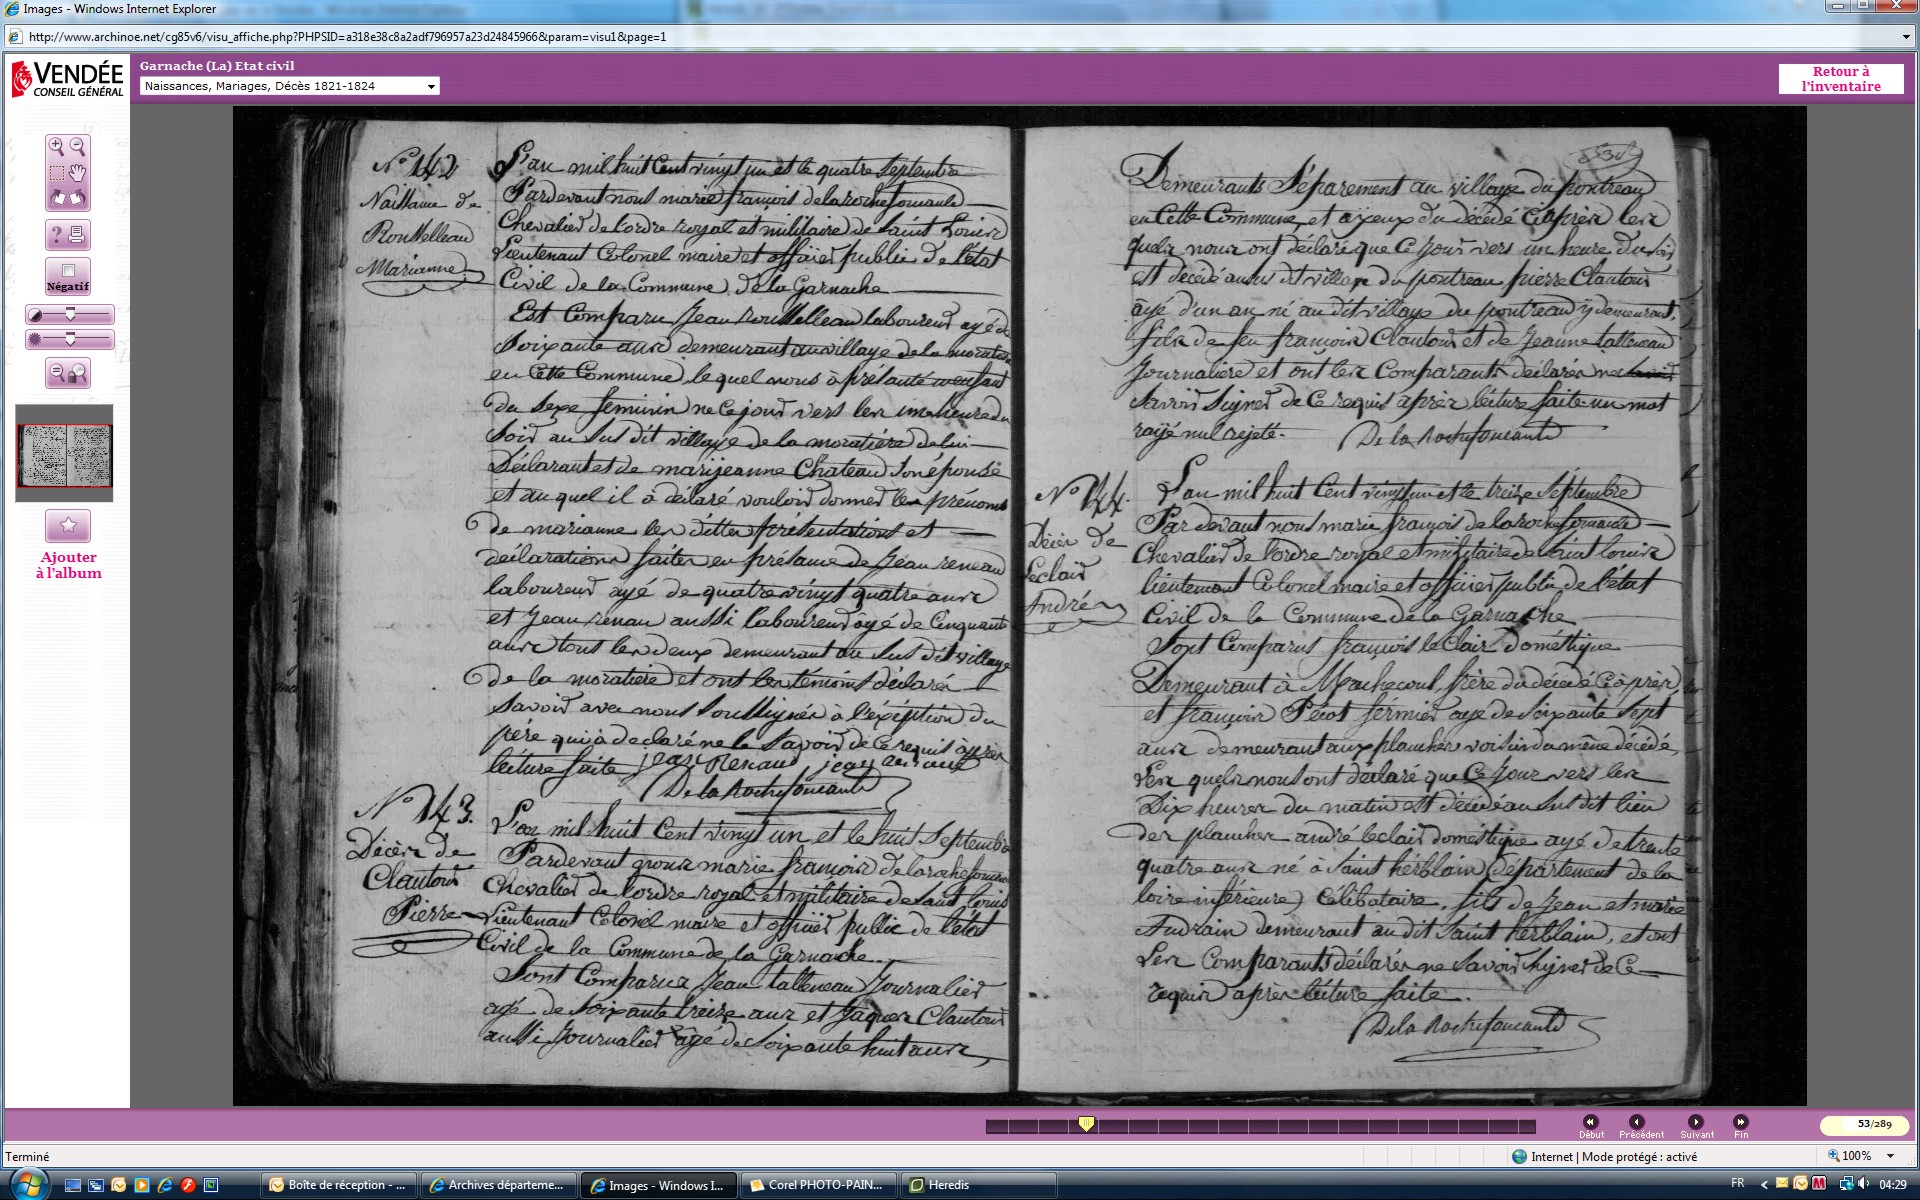 Images - Windows Internet Explorer
http://www.archinoe.net/cg85v6/visu_affiche.php?PHPSID=a318e38c8a2adf796957a23d24845966&param=visu1&page=1
VENDÉE
CONSEIL GÉNÉRAL
Garnache (La) Etat civil
Naissances, Mariages, Décès 1821-1824
Retour à
l'inventaire
Négatif
Ajouter
à l'album
N° 142
Naissance de
Rousselleau
Marianne
L'an mil huit Cent vingt un et le quatre Septembre
Pardevant nous marie françois delarochefoucauld
Chevalier de l'ordre royal et militaire de Saint Louis
Lieutenant Colonel maire et officier public de l'état
Civil de la Commune de la Garnache
Est Comparu Jean rousselleau laboureur agé de
Soixante ans demeurant au village de la moratière
en Cette Commune, lequel nous à présenté un enfant
du Sexe feminin né ce jour vers les une heure du
Soir au Sus dit village de la moratière de lui
Déclarant et de marijeanne Chateau Son épouse
et au quel il à déclaré vouloir donner les prénoms
de marianne les dittes présentations et
déclarations faites en présance de Jean reneau
laboureur agé de quatre vingt quatre ans
et Jean renau aussi laboureur âgé de Cinquante
ans tous les deux demeurant au Sus dit village
de la moratière et ont les témoins déclarés
Savoir avec nous Soussignés à l'éxéption du
père qui à declaré ne le Savoir de Ce requis après
lecture faite jean Renaud, jean
De la Rochefoucauld
N° 143.
Décès de
Clautour
Pierre
L'an mil huit Cent vingt un et le huit Septembre
Pardevant nous marie françois de larochefoucauld
Chevalier de l'ordre royal et militaire de Saint louis
Lieutenant Colonel maire et officier public de l'état
Civil de la Commune de la Garnache.
Sont Comparus Jean talleneau Journalier
agé de Soixante treize ans et Jaques Clautour
aussi Journalier âgé de Soixante huit ans
Demeurants Séparement au village du pontreau
en Cette Commune, et ayeux du décédé Ciaprès les
quels nous ont déclaré que Ce Jour vers un heure du Soir
est décédé au sus dit village du pontreau pierre Clautour
âgé d'un an né au dit village du pontreau y demeurant,
fils de feu françois Clautour et de Jeanne talleneau
Journalière et ont les Comparants déclarés ne
Savoir Signer de Ce requis après lécture faite un mot
rayé nul rejeté.
De la Rochefoucauld
N° 144.
Décès de
Leclair
André
L'an mil huit Cent vingt un et le treize Septembre
Par devant nous marie françois de larochefoucauld
Chevalier de l'ordre royal et militaire de Saint louis
lieutenant Colonel maire et officier public de l'état
Civil de la Commune de la Garnache
Sont Comparus françois leclair doméstique
Demeurant à Machecoul, frère du décédé Ciaprès
et françois Pécot férmier agé de Soixante Sept
ans demeurant aux planches voisin du même décédé,
Les quels nous ont déclaré que Ce Jour vers les
Dix heures du matin est décédé au Sus dit lieu
des planches andré leclair doméstique agé de trente
quatre ans né à Saint hérblain (département de la
loire inférieure) Célibataire, fils de Jean et marie
Audrain demeurant au dit Saint hérblain, et ont
Les Comparants déclarés ne Savoir Signer de Ce
requis après lécture faite.
De la Rochefoucauld
Début
Précédent
Suivant
Fin
53/289
Terminé
Internet | Mode protégé : activé
100%
Boîte de réception - ...
Archives départeme...
Images - Windows I...
Corel PHOTO-PAIN...
Heredis
FR
04:29